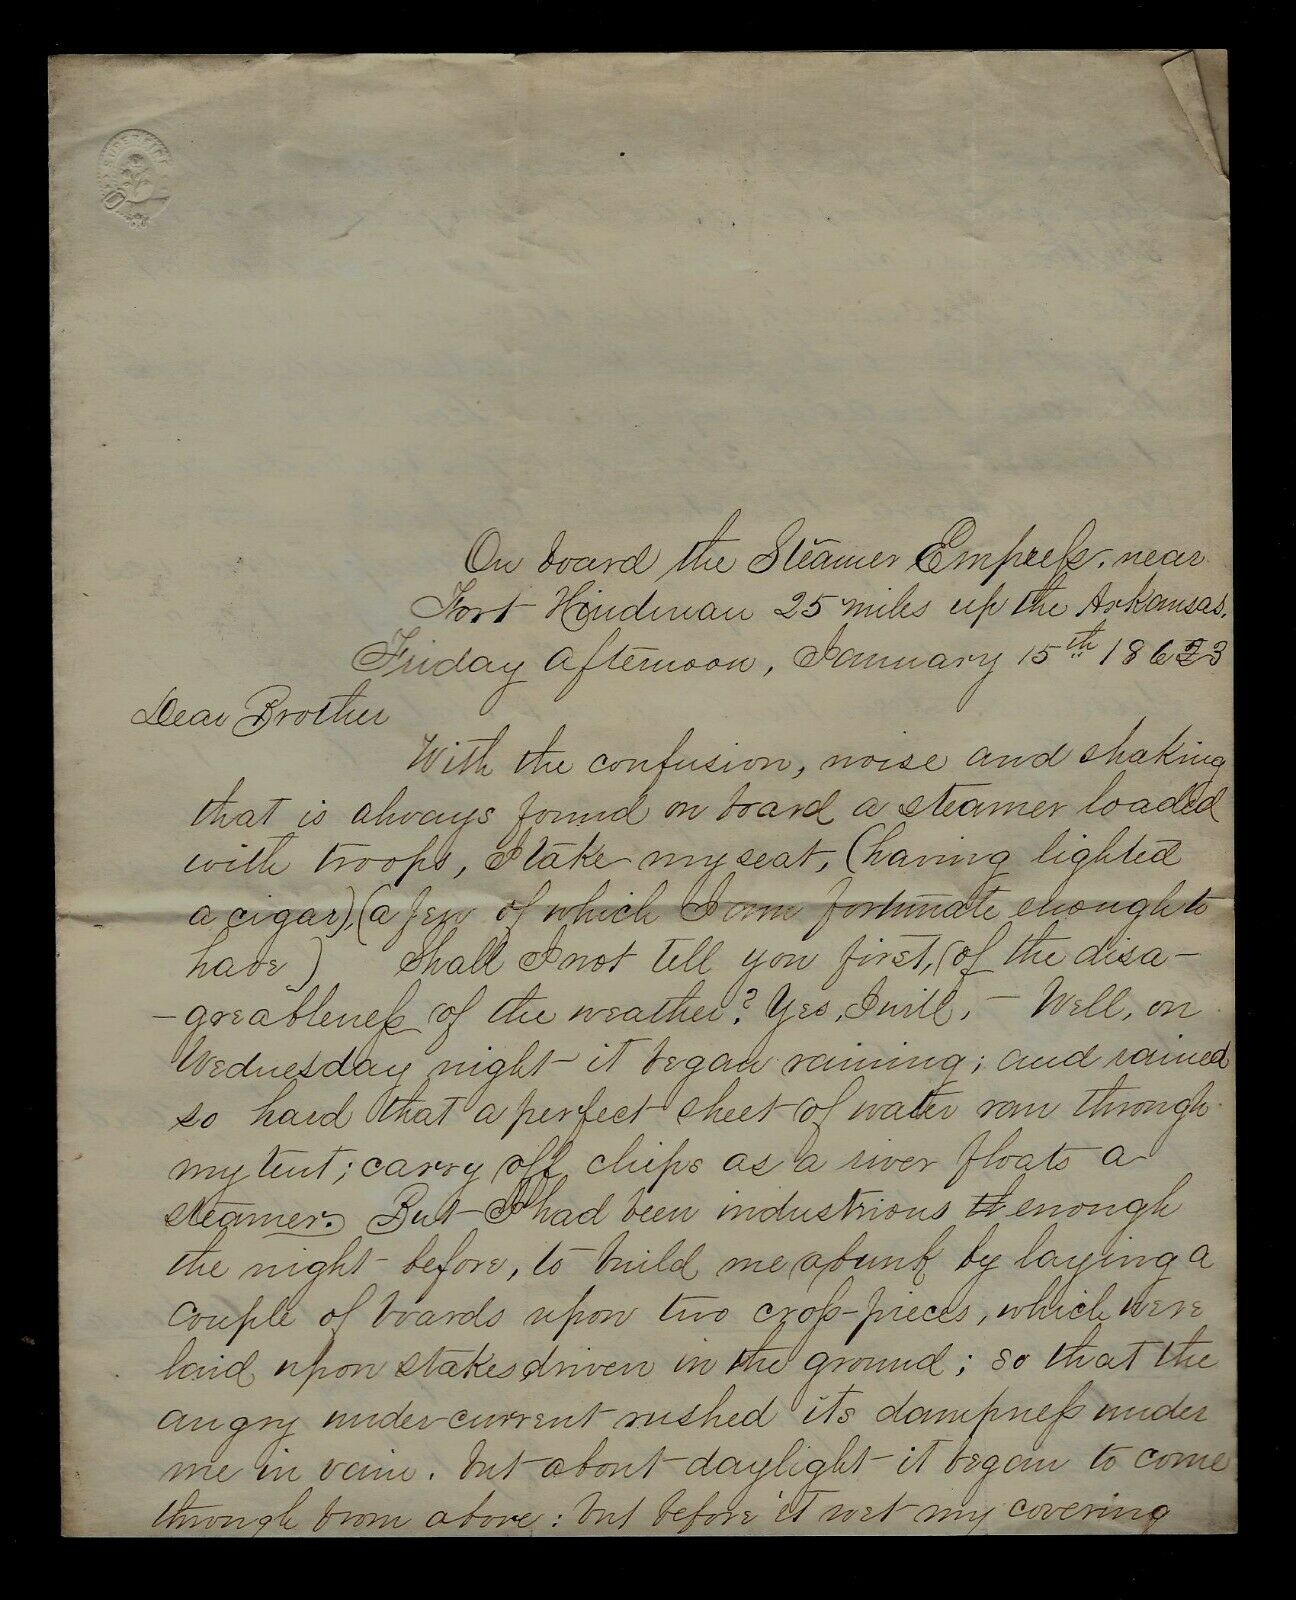 SUPERFINE
On board the Steamer Empress. near
Fort Hindman 25 miles up the Arkansas.
Friday afternoon, January 15th 18623
Dear Brother
With the confusion, noise and shaking
that is always found on board a steamer loaded
with troops, I take my seat, (having lighted
a cigar), (a few of which I am fortunate enough to
have) Shall I not tell you first, of the disa-
-greableness of the weather? Yes, I will, - Well, on
Wednesday night it began raining; and rained
so hard that a perfect sheet of water ran through
my tent; carry off chips as a river floats a
steamer. But I had been industrious th enough
the night before, to build me a bunk by laying a
couple of boards upon two cross-pieces, which were
laid upon stakes driven in the ground; so that the
angry under-current rushed its dampness under
me in vain. but about daylight it began to come
through from above: but before it wet my covering